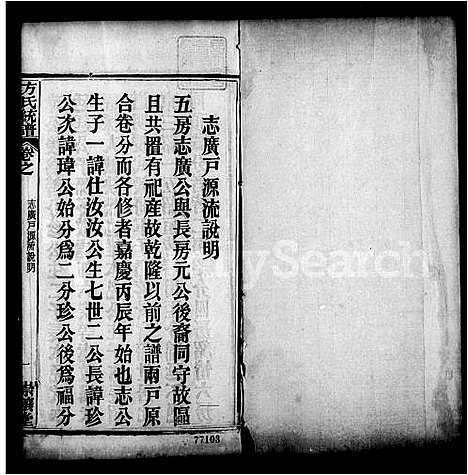 志廣戸源流說明
五房志廣公與長房元公後裔同守故區
且共置有祀產故乾隆以前之譜兩戸原
合卷分而各修者嘉慶丙辰年始也志公
生子一諱仕汝汝公生七世二公長諱珍
公次諱瑋公始分爲二分珍公後爲福分
方氏統譜
卷之
志廣戸源流說明
77103
Search